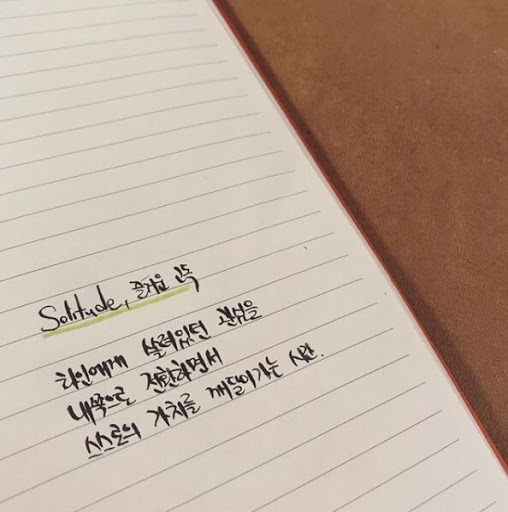 Solitude, 즐거운 고독
타인에게 쏠려있던 관심을
내쪽으로 전환하면서
스스로의 가치를 깨달아가는 시간.